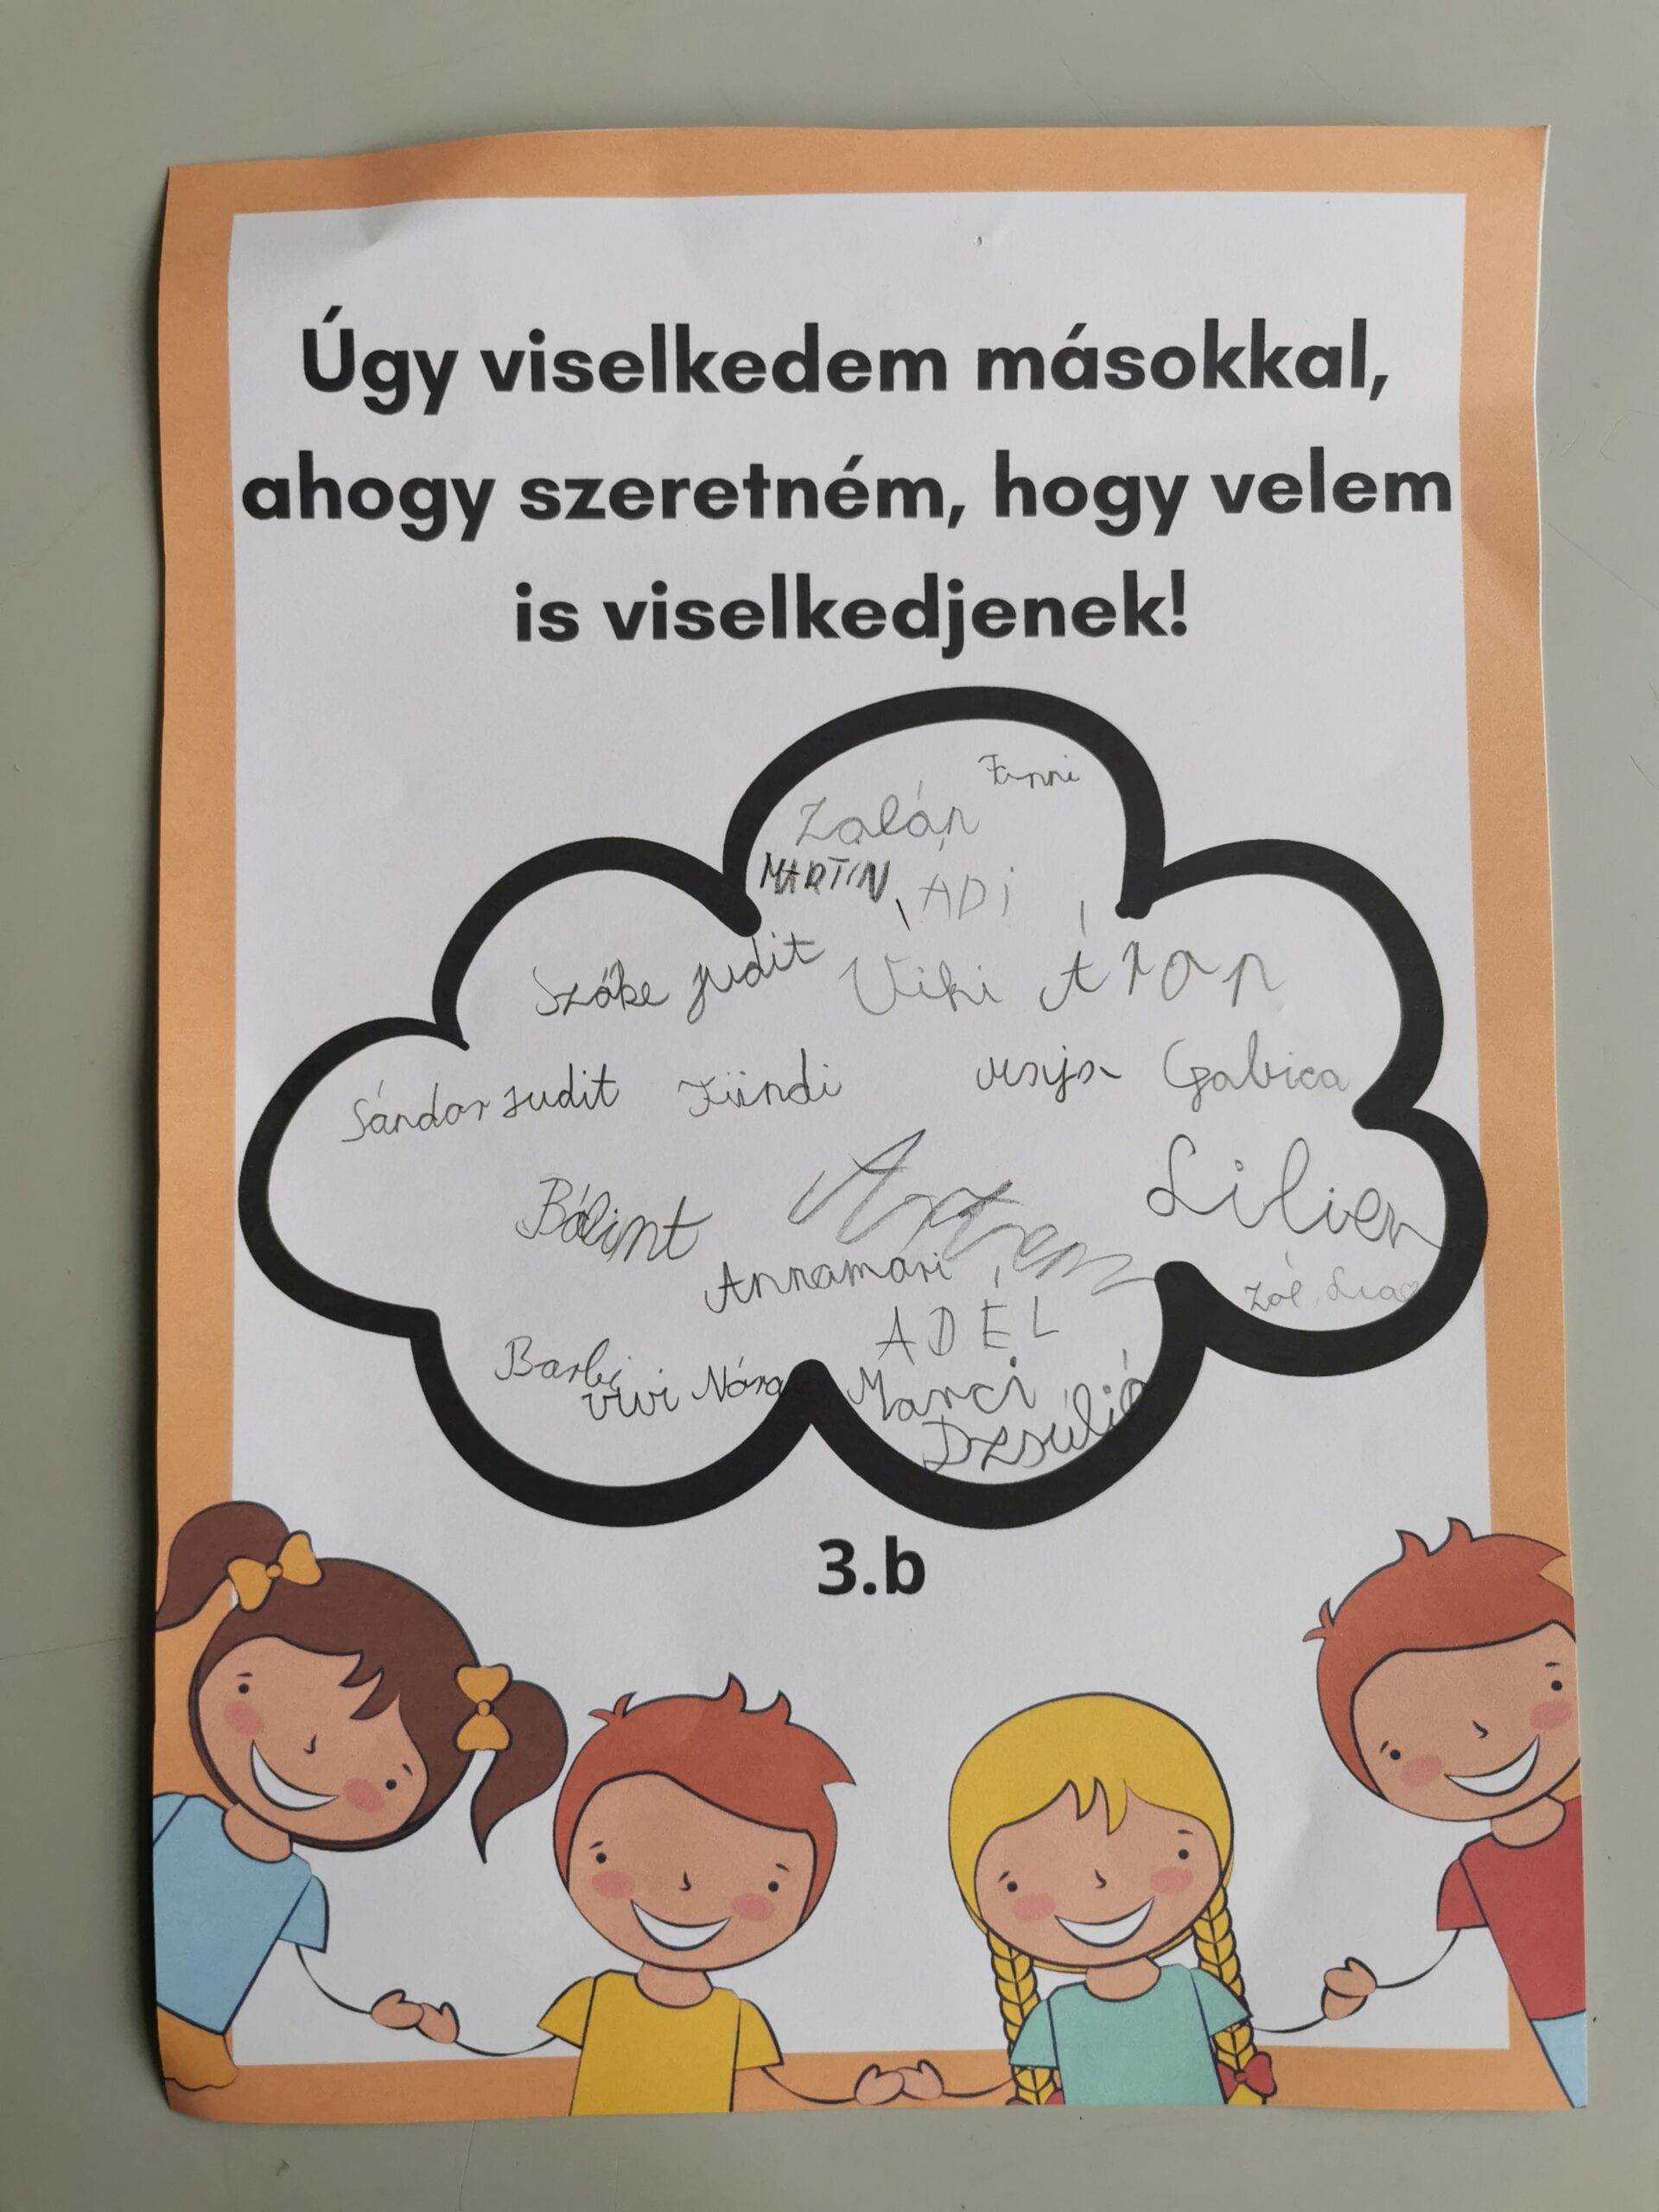 Úgy viselkedem másokkal,
ahogy szeretném, hogy velem
is viselkedjenek!
Fanni
Zalán
MARTIN ADI
Szőke Judit Viki Áron
Sándor Judit Fündi Gabica
Bálint Artrem Lilien
Annamari Zoé Lia
ADÉL
Barbi
vivi Nóra Marci
Dzsúlió
3.b